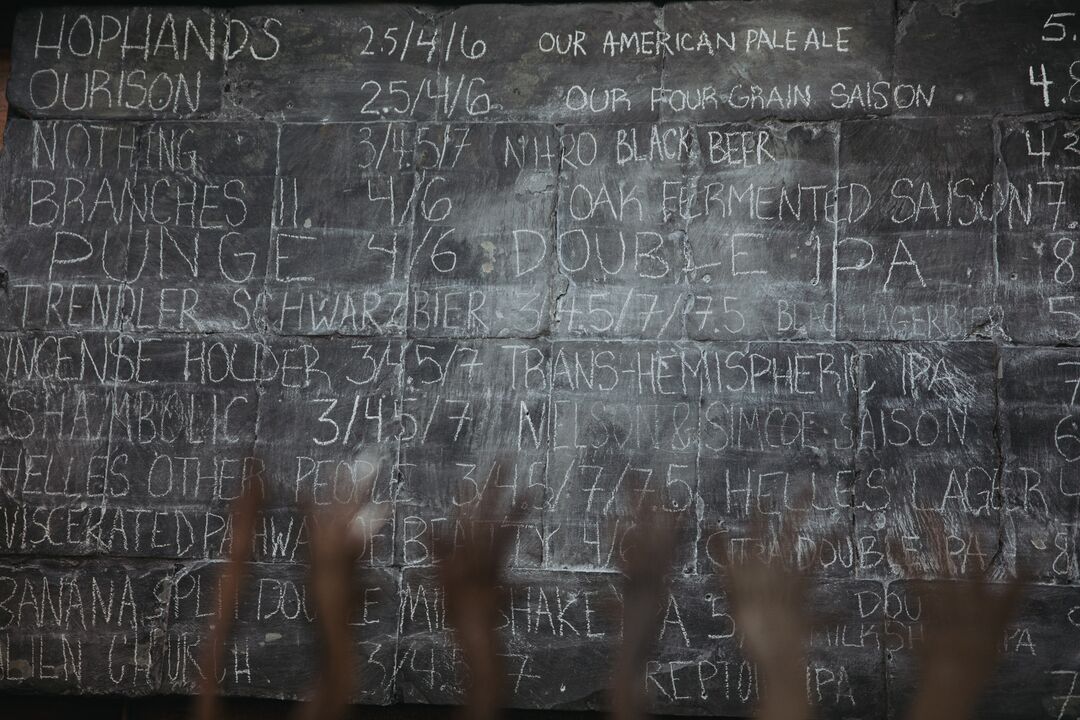 HOPHANDS 2.5/4/6 OUR AMERICAN PALE ALE 5.
OURISON 2.5/4/6 OUR FOUR GRAIN SAISON 4.8
NOTHING 3/4.5/7 NITRO BLACK BEER 4.3
BRANCHES II 4/6 OAK FERMENTED SAISON 7.
PUNGE 4/6 DOUBLE IPA 8
TRENDLER SCHWARZBIER 3/4.5/7/7.5 LAGERBIER 5
INCENSE HOLDER 3/4.5/7 TRANS-HEMISPHERIC IPA 7
SHAMBOLIC 3/4.5/7 NELSON & SIMCOE SAISON 6
HELLES OTHER PEOPLE 3/4.5/7/7.5 HELLES LAGER 4
VISCERATED PATHWAY OF BEAUTY 4/6 CITRA DOUBLE IPA 8
BANANA SPLIT DOUBLE MILKSHAKE IPA 5 DOU MILKSH PA 8
ALIEN CHURCH 3/4.5/7 IPA 7